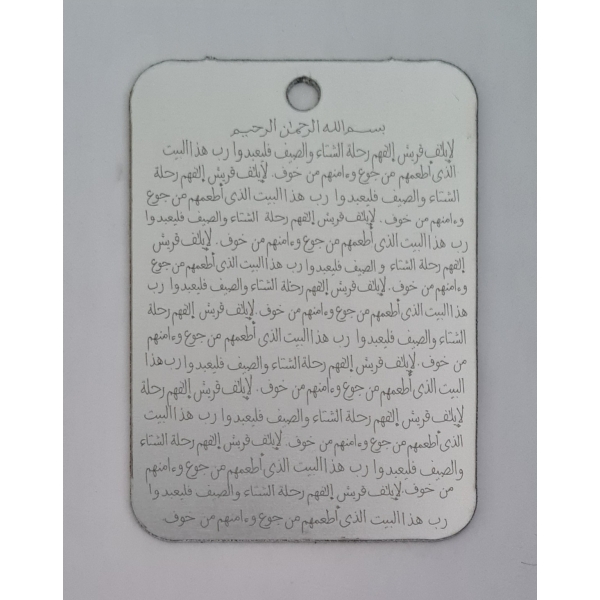 بسم الله الرحمن الرحيم
لإيلف قريش إلفهم رحلة الشتاء والصيف فليعبدوا رب هذا البيت
الذى أطعمهم من جوع وءامنهم من خوف. لإيلف قريش إلفهم رحلة
الشتاء والصيف فليعبدوا رب هذا البيت الذى أطعمهم من جوع
وءامنهم من خوف. لإيلف قريش إلفهم رحلة الشتاء والصيف فليعبدوا
رب هذا البيت الذى أطعمهم من جوع وءامنهم من خوف. لإيلف قريش
إلفهم رحلة الشتاء والصيف فليعبدوا رب هذا البيت الذى أطعمهم من جوع
وءامنهم من خوف. لإيلف قريش إلفهم رحلة الشتاء والصيف فليعبدوا رب
هذا البيت الذى أطعمهم من جوع وءامنهم من خوف. لإيلف قريش إلفهم رحلة
الشتاء والصيف فليعبدوا رب هذا البيت الذى أطعمهم من جوع وءامنهم
من خوف. لإيلف قريش إلفهم رحلة الشتاء والصيف فليعبدوا رب هذا
البيت الذى أطعمهم من جوع وءامنهم من خوف. لإيلف قريش إلفهم رحلة
لإيلف قريش إلفهم رحلة الشتاء والصيف فليعبدوا رب هذا البيت
الذى أطعمهم من جوع وءامنهم من خوف. لإيلف قريش إلفهم رحلة الشتاء
والصيف فليعبدوا رب هذا البيت الذى أطعمهم من جوع وءامنهم
من خوف. لإيلف قريش إلفهم رحلة الشتاء والصيف فليعبدوا
رب هذا البيت الذى أطعمهم من جوع وءامنهم من خوف